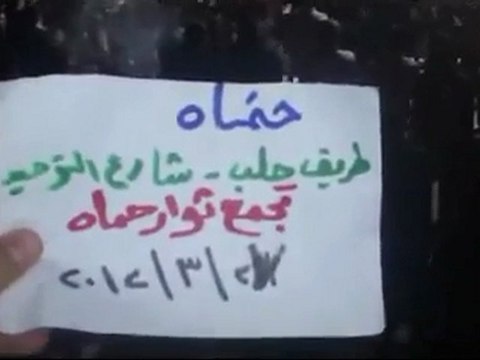 حماه
طريق حلب - شارع التوحيد
تجمع ثوار حماه
٢٠١٢/٣/